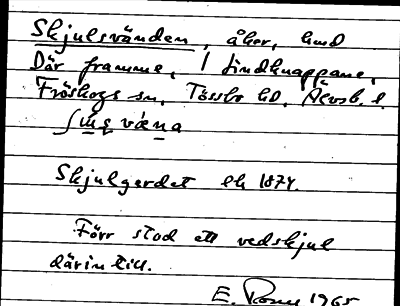 Skjulsvänden, åker, hmd
Där framme, / Lindknappane,
Fröskogs sn, Tössbo hd, Älvsb. l.
Skjulgerdet ek 1874.
Förr stod ett vedskjul
därintill.
E. 1965